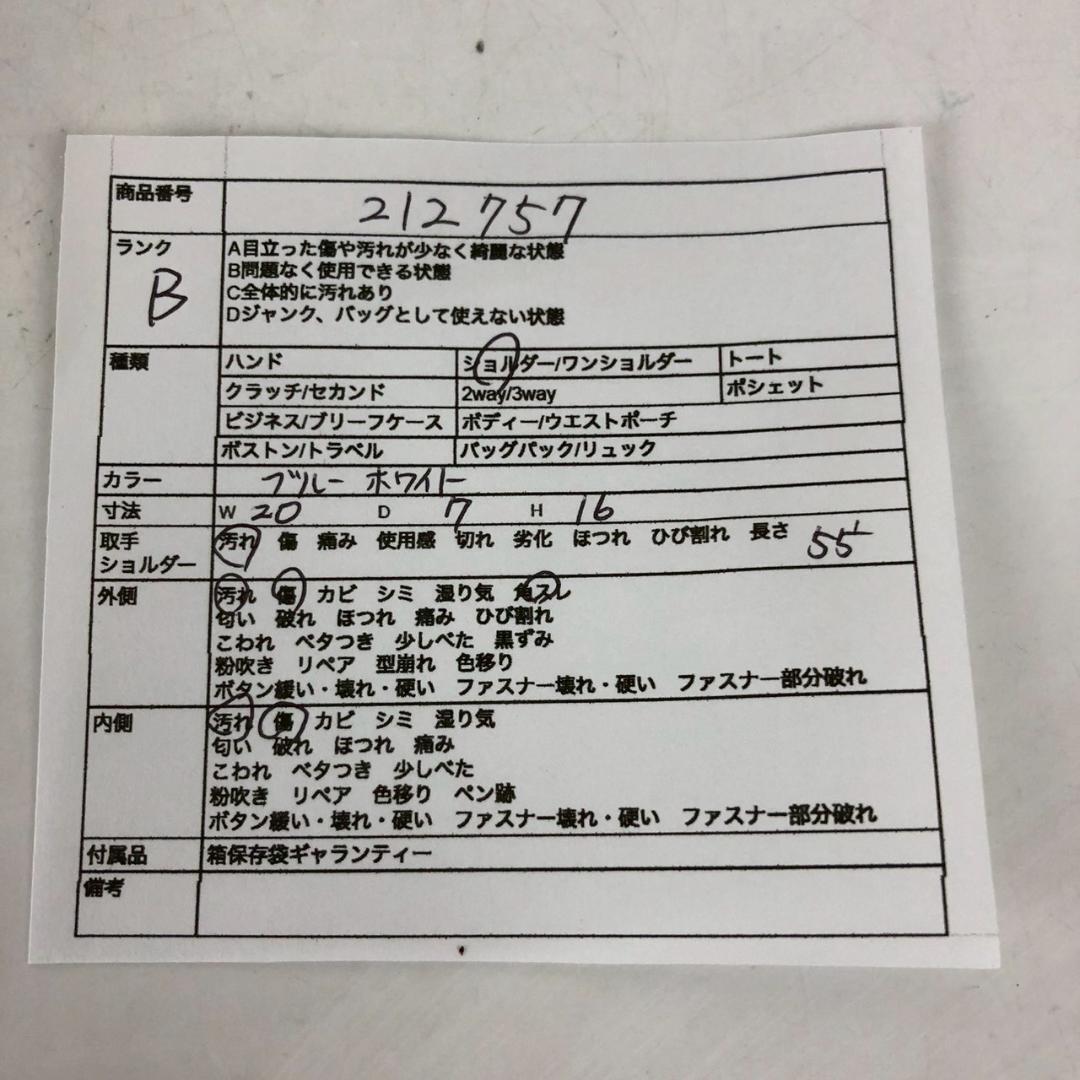 商品番号 212757
ランク B
A目立った傷や汚れが少なく綺麗な状態
B問題なく使用できる状態
C全体的に汚れあり
Dジャンク、バッグとして使えない状態
種類 ハンド ショルダー/ワンショルダー トート
クラッチ/セカンド 2way/3way ポシェット
ビジネス/ブリーフケース ボディー/ウエストポーチ
ボストン/トラベル バッグパック/リュック
カラー ブルー ホワイト
寸法 W 20 D 7 H 16
取手 汚れ 傷 痛み 使用感 切れ 劣化 ほつれ ひび割れ 長さ 55
ショルダー
外側 汚れ 傷 カビ シミ 湿り気 角スレ
匂い 破れ ほつれ 痛み ひび割れ
こわれ ベタつき 少しべた 黒ずみ
粉吹き リペア 型崩れ 色移り
ボタン緩い・壊れ・硬い ファスナー壊れ・硬い ファスナー部分破れ
内側 汚れ 傷 カビ シミ 湿り気
匂い 破れ ほつれ 痛み
こわれ ベタつき 少しべた
粉吹き リペア 色移り ペン跡
ボタン緩い・壊れ・硬い ファスナー壊れ・硬い ファスナー部分破れ
付属品 箱保存袋ギャランティー
備考